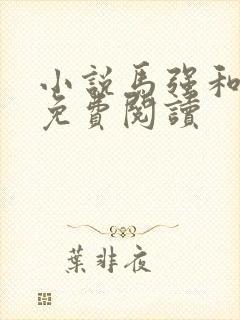 小説馬强和
免費閱讀
葉非夜